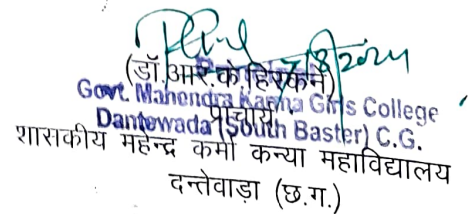 7/8/2024
(डॉ.आर.के.हिरकने)
प्राचार्य
Govt. Mahendra Karma Girls College
Dantewada (South Baster) C.G.
शासकीय महेन्द्र कर्मा कन्या महाविद्यालय
दन्तेवाड़ा (छ.ग.)